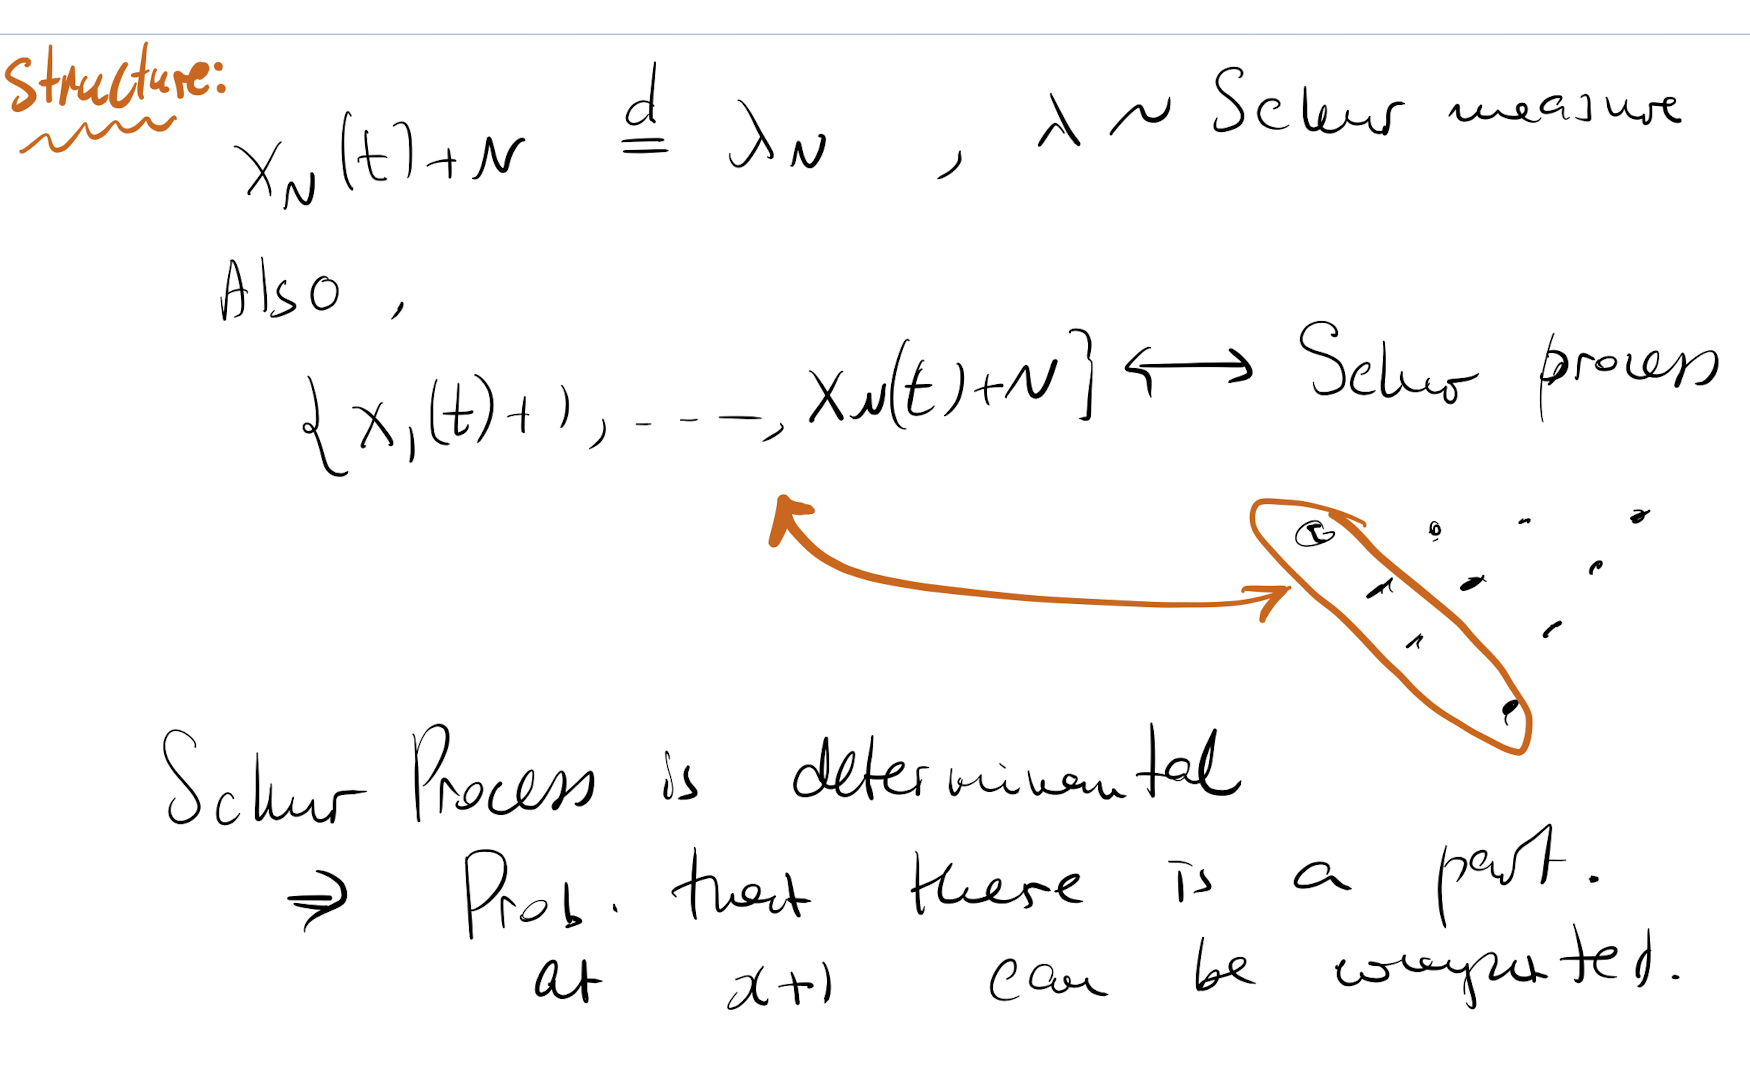 Structure:
x_N(t)+N =^d λ_N , λ ~ Schur measure
Also ,
{x_1(t)+1, ---, x_N(t)+N} ↔ Schur process
Schur Process is determinantal
⇒ Prob. that there is a part.
at x+1 can be computed.